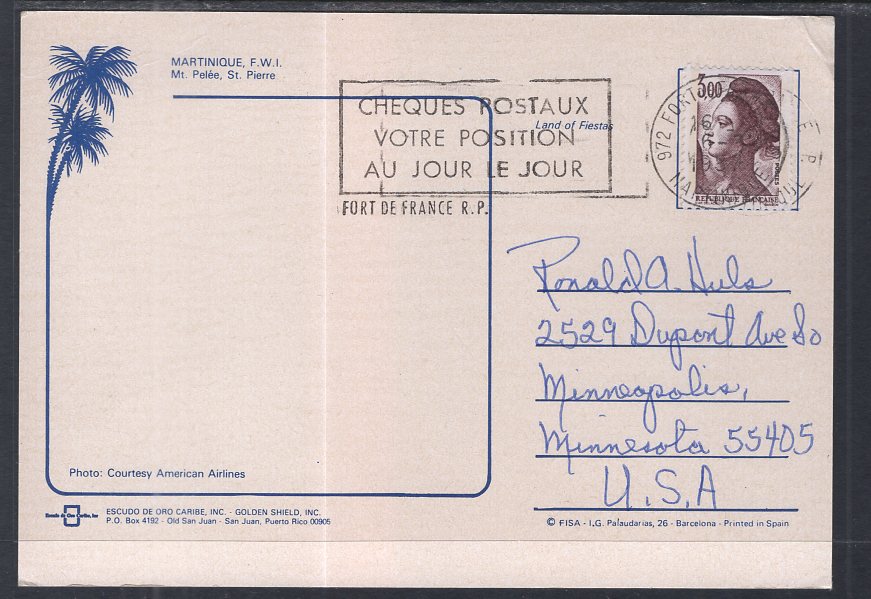 MARTINIQUE, F.W.I.
Mt. Pelée, St. Pierre
CHEQUES POSTAUX
VOTRE POSITION
AU JOUR LE JOUR
FORT DE FRANCE R.P.
Land of Fiestas
3,00
REPUBLIQUE FRANÇAISE
POSTES
972 FORT DE FRANCE R.P.
MARTINIQUE
16
Ronald A. Huls
2529 Dupont Ave So
Minneapolis,
Minnesota 55405
U.S.A
Photo: Courtesy American Airlines
Escudo de Oro Caribe, Inc
ESCUDO DE ORO CARIBE, INC. - GOLDEN SHIELD, INC.
P.O. Box 4192 - Old San Juan - San Juan, Puerto Rico 00905
© FISA - I.G. Palaudarias, 26 - Barcelona - Printed in Spain